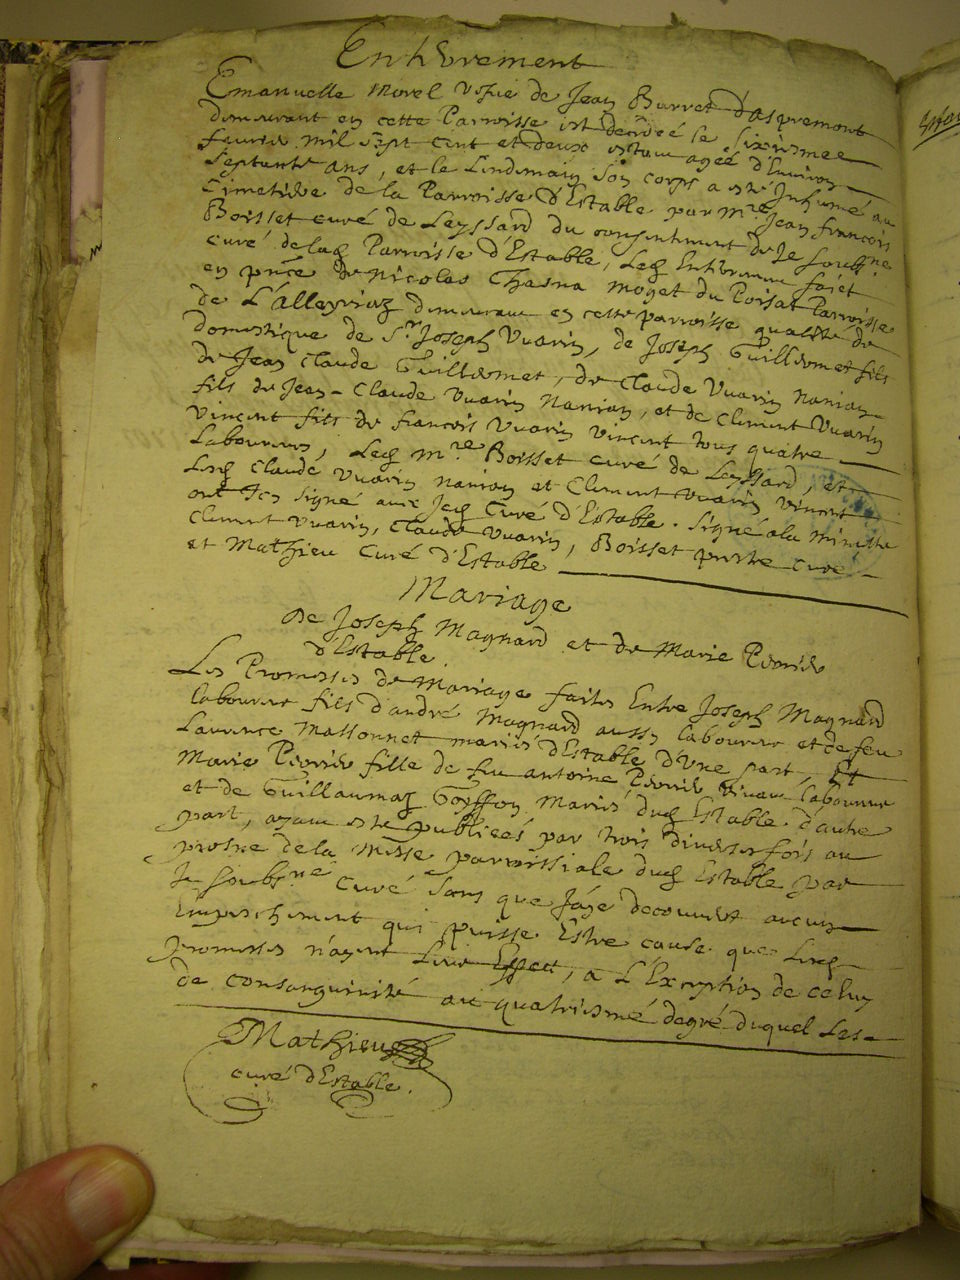 Enterrement
Emanuelle Morel vefue de Jean Burret d'aspremont
demeurant en cette Parroisse est decedeé le sixiesmee
feurier mil sept cent et deux estant ageé d'Enuiron
septente ans, et le Lendemain son corps a este Inhumé au
Cimetiere de la Parroisse d'Estable par mre Jean francois
Boisset curé de Leyssard du consentement de Je soubsne
curé de lad Parroisse d'Estable, Led Enterremt fait
en pnce de Nicolas Chasna moget du Poisat Parroisse
de L'alleyriaz demeurant en cette parroisse qualité de
domestique de Sr Joseph Vuarin, de Joseph Guillermet fils
de Jean Claude Guillermet, de Claude Vuarin Nanian
fils de Jean-Claude Vuarin Nanian, et de Clement Vuarin
Vincent fils de francois Vuarin Vincent tous quatre
Laboureurs, Led mre Boisset curé de Leyssard, et
Lesd Claude Vuarin nanian et Clement Vuarin Vincent
ont Icy signé auec Led Curé d'Estable. Signé a la minutte
Clement Vuarin, Claude Vuarin, Boisset pretre cure
et Mathieu Curé d'Estable
Mariage
de Joseph Magnard et de Marie Perrier
d'Estable.
Les Promesses de Mariage faites Entre Joseph Magnard
laboureur fils d'andré Magnard aussy laboureur et de feu
Laurence Massonnet mariés d'Estable d'Vne part, Et
Marie Perrier fille de feu antoine Perrier viuant laboureur
et de Guillaumaz Goyffon Mariés dud Estable d'autre
part, ayant este publieés par trois diuerses fois au
prosne de la Messe parroissiale dud Estable par
Je soubsne Curé sans que J'aye decouuert aucun
Empeschement qui puisse Estre cause que Lesd
promesses n'ayent Leur Effect, a L'Exception de celuy
de consanguinité au quatriesmé degré duquel Les-
Mathieu
curé d'Estable.